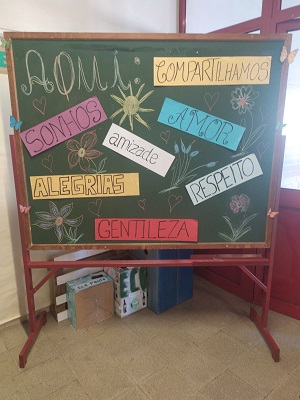 AQUI:
COMPARTILHAMOS
SONHOS
AMOR
amizade
ALEGRIAS
RESPEITO
GENTILEZA